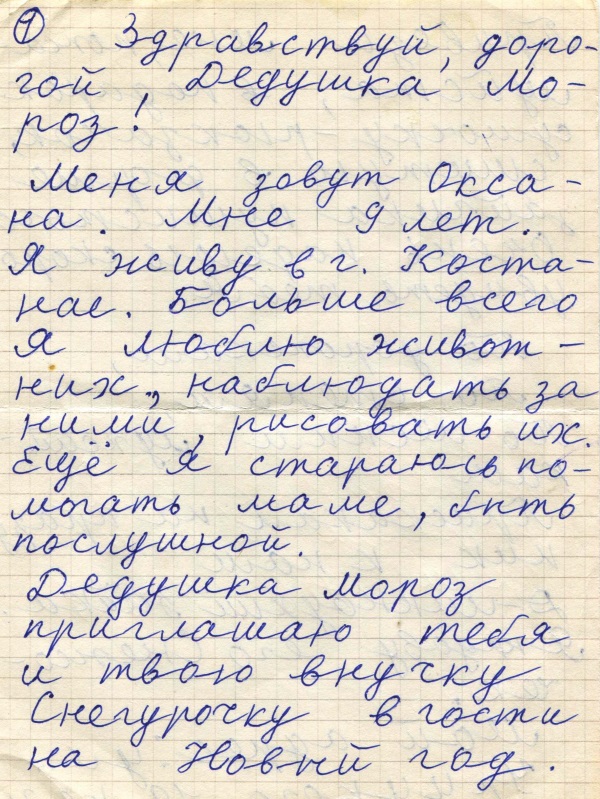 1 Здравствуй, доро-
гой, Дедушка Мо-
роз!
Меня зовут Окса-
на. Мне 9 лет.
Я живу в г. Коста-
нае. Больше всего
я люблю живот-
них, наблюдать за
ними, рисовать их.
Ещё я стараюсь по-
могать маме, быть
послушной.
Дедушка Мороз
приглашаю тебя
и твою внучку
Снегурочку в гости
на Новый год.